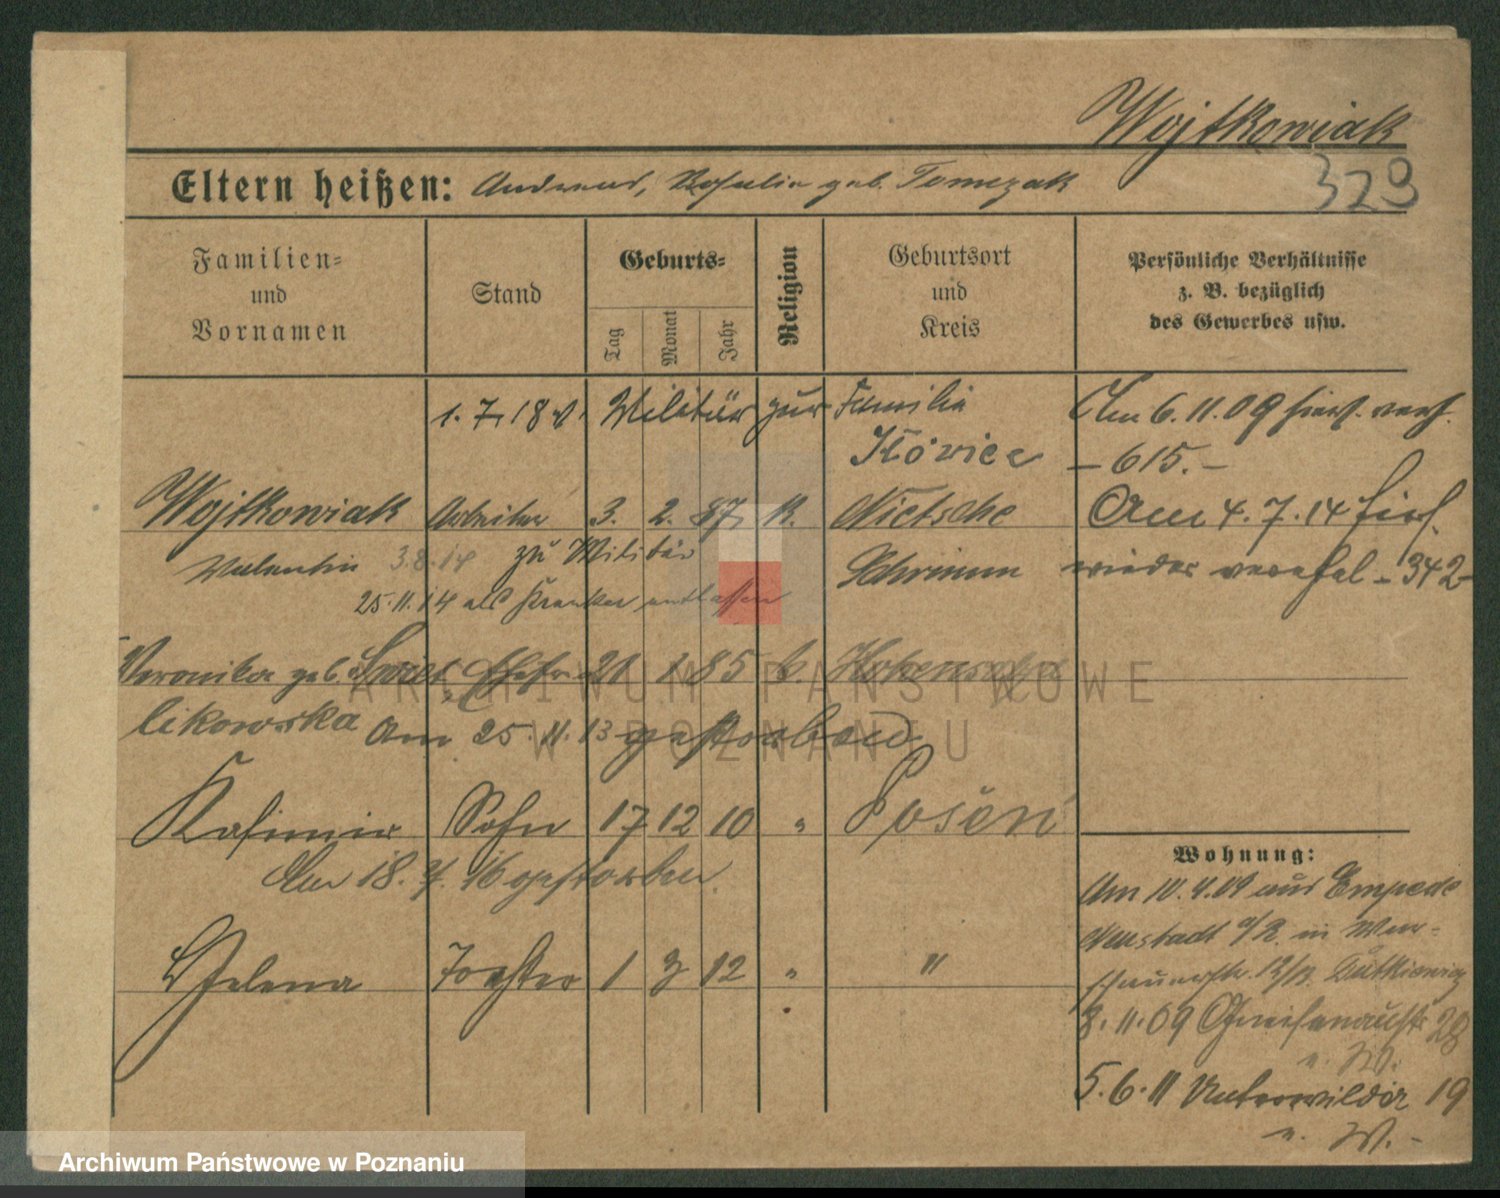 Wojtkowiak
329
Eltern heißen: Andreas, Rosalie geb. Tomczak
Familien=
und
Vornamen
Stand
Geburts=
Tag
Monat
Jahr
Religion
Geburtsort
und
Kreis
Persönliche Verhältnisse
z. B. bezüglich
des Gewerbes usw.
1. 7. 18 v. Militär zur Familie
Am 6.11.09 hier verh.
Kówiec
– 615. –
Wojtkowiak Arbeiter 3. 2. 87 K. Nietsche
Am 4.7.14 hier
Valentin 3.8.14 zu Militär Schrimm
wieder verehel – 342 –
25.11.14 als Kranker entlassen
Veronika geb. Ehefr. 21 1 85 k.
likowska Am 25.11.13 gestorben
Kasimir Sohn 17 12 10 " Posen
Am 18. 4. 16 gestorben.
Helena Tochter 1 3 12 " "
Wohnung:
Am 10.4.09 aus
Neustadt a/R. in War-
schauerstr. 12/13.
8.11.09 Gneisenaustr 28
u. W.
5.6.11 Unterwilda 19
u. W. –
ARCHIWUM PAŃSTWOWE
W POZNANIU
Archiwum Państwowe w Poznaniu